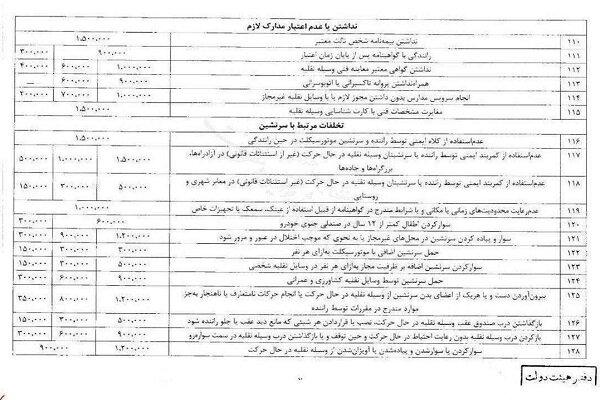 نداشتن یا عدم اعتبار مدارک لازم
۱۱۰ نداشتن بیمه‌نامه شخص ثالث معتبر ۱.۵۰۰.۰۰۰
۱۱۱ رانندگی با گواهینامه پس از پایان زمان اعتبار ۹۰۰.۰۰۰ ۳۰۰.۰۰۰
۱۱۲ نداشتن گواهی معتبر معاینه فنی وسیله نقلیه ۱.۰۰۰.۰۰۰ ۶۰۰.۰۰۰ ۴۰۰.۰۰۰
۱۱۳ همراه‌نداشتن پروانه تاکسیرانی یا اتوبوسرانی ۹۰۰.۰۰۰ ۶۰۰.۰۰۰ —
۱۱۴ انجام سرویس مدارس بدون داشتن مجوز لازم یا با وسایل نقلیه غیرمجاز ۱.۰۰۰.۰۰۰ ۷۰۰.۰۰۰ ۲۰۰.۰۰۰
۱۱۵ مغایرت مشخصات فنی با کارت شناسایی وسیله نقلیه ۱.۵۰۰.۰۰۰
تخلفات مرتبط با سرنشین
۱۱۶ عدم‌استفاده از کلاه ایمنی توسط راننده و سرنشین موتورسیکلت در حین رانندگی ۱.۵۰۰.۰۰۰
۱۱۷ عدم‌استفاده از کمربند ایمنی توسط راننده یا سرنشینان وسیله نقلیه در حال حرکت (غیر از استثنائات قانونی) در آزادراه‌ها، ۱.۵۰۰.۰۰۰ ۱.۰۰۰.۰۰۰ ۵۰۰.۰۰۰
بزرگراه‌ها و جاده‌ها
۱۱۸ عدم‌استفاده از کمربند ایمنی توسط راننده یا سرنشینان وسیله نقلیه در حال حرکت (غیر استثنائات قانونی) در معابر شهری و ۵۰۰.۰۰۰ ۳۰۰.۰۰۰ ۱۵۰.۰۰۰
روستایی
۱۱۹ عدم‌رعایت محدودیت‌های زمانی یا مکانی و یا شرایط مندرج در گواهینامه از قبیل استفاده از عینک، سمعک یا تجهیزات خاص ۱.۰۰۰.۰۰۰
۱۲۰ سوارکردن اطفال کمتر از ۱۲ سال در صندلی جلوی خودرو ۶۰۰.۰۰۰ ۳۰۰.۰۰۰
۱۲۱ سوار و پیاده کردن سرنشین در محل‌های غیرمجاز یا به نحوی که موجب اختلال در عبور و مرور شود ۱.۲۰۰.۰۰۰ ۹۰۰.۰۰۰ ۳۰۰.۰۰۰
۱۲۲ حمل سرنشین اضافی با موتورسیکلت به‌ازای هر نفر ۵۰۰.۰۰۰ ۳۰۰.۰۰۰ ۱۵۰.۰۰۰
۱۲۳ سوارکردن سرنشین اضافه بر ظرفیت مجاز به‌ازای هر نفر در وسایل نقلیه شخصی ۵۰۰.۰۰۰ ۳۰۰.۰۰۰ ۱۵۰.۰۰۰
۱۲۴ حمل سرنشین توسط وسایل نقلیه کشاورزی و عمرانی ۹۰۰.۰۰۰ ۶۰۰.۰۰۰ ۳۰۰.۰۰۰
۱۲۵ بیرون‌آوردن دست و یا هریک از اعضای بدن سرنشین از وسیله نقلیه در حال حرکت یا انجام حرکات نامتعارف یا ناهنجار به‌جز ۱.۲۰۰.۰۰۰ ۸۰۰.۰۰۰ ۳۵۰.۰۰۰
موارد مندرج در مقررات توسط راننده
۱۲۶ بازگذاشتن درب صندوق عقب وسیله نقلیه در حال حرکت، نصب یا قراردادن هر شیئی که مانع دید عقب یا جلو راننده شود ۵۰۰.۰۰۰ ۳۰۰.۰۰۰ ۱۵۰.۰۰۰
۱۲۷ بازکردن درب وسیله نقلیه بدون رعایت احتیاط در حال حرکت و حین توقف و یا بازگذاشتن درب وسیله نقلیه در سمت سواره‌رو ۹۰۰.۰۰۰ ۶۰۰.۰۰۰ ۳۰۰.۰۰۰
۱۲۸ سوارکردن یا سوارشدن و پیاده‌شدن یا آویزان‌شدن از وسیله نقلیه در حال حرکت ۱.۲۰۰.۰۰۰ ۹۰۰.۰۰۰
دفتر هیئت دولت